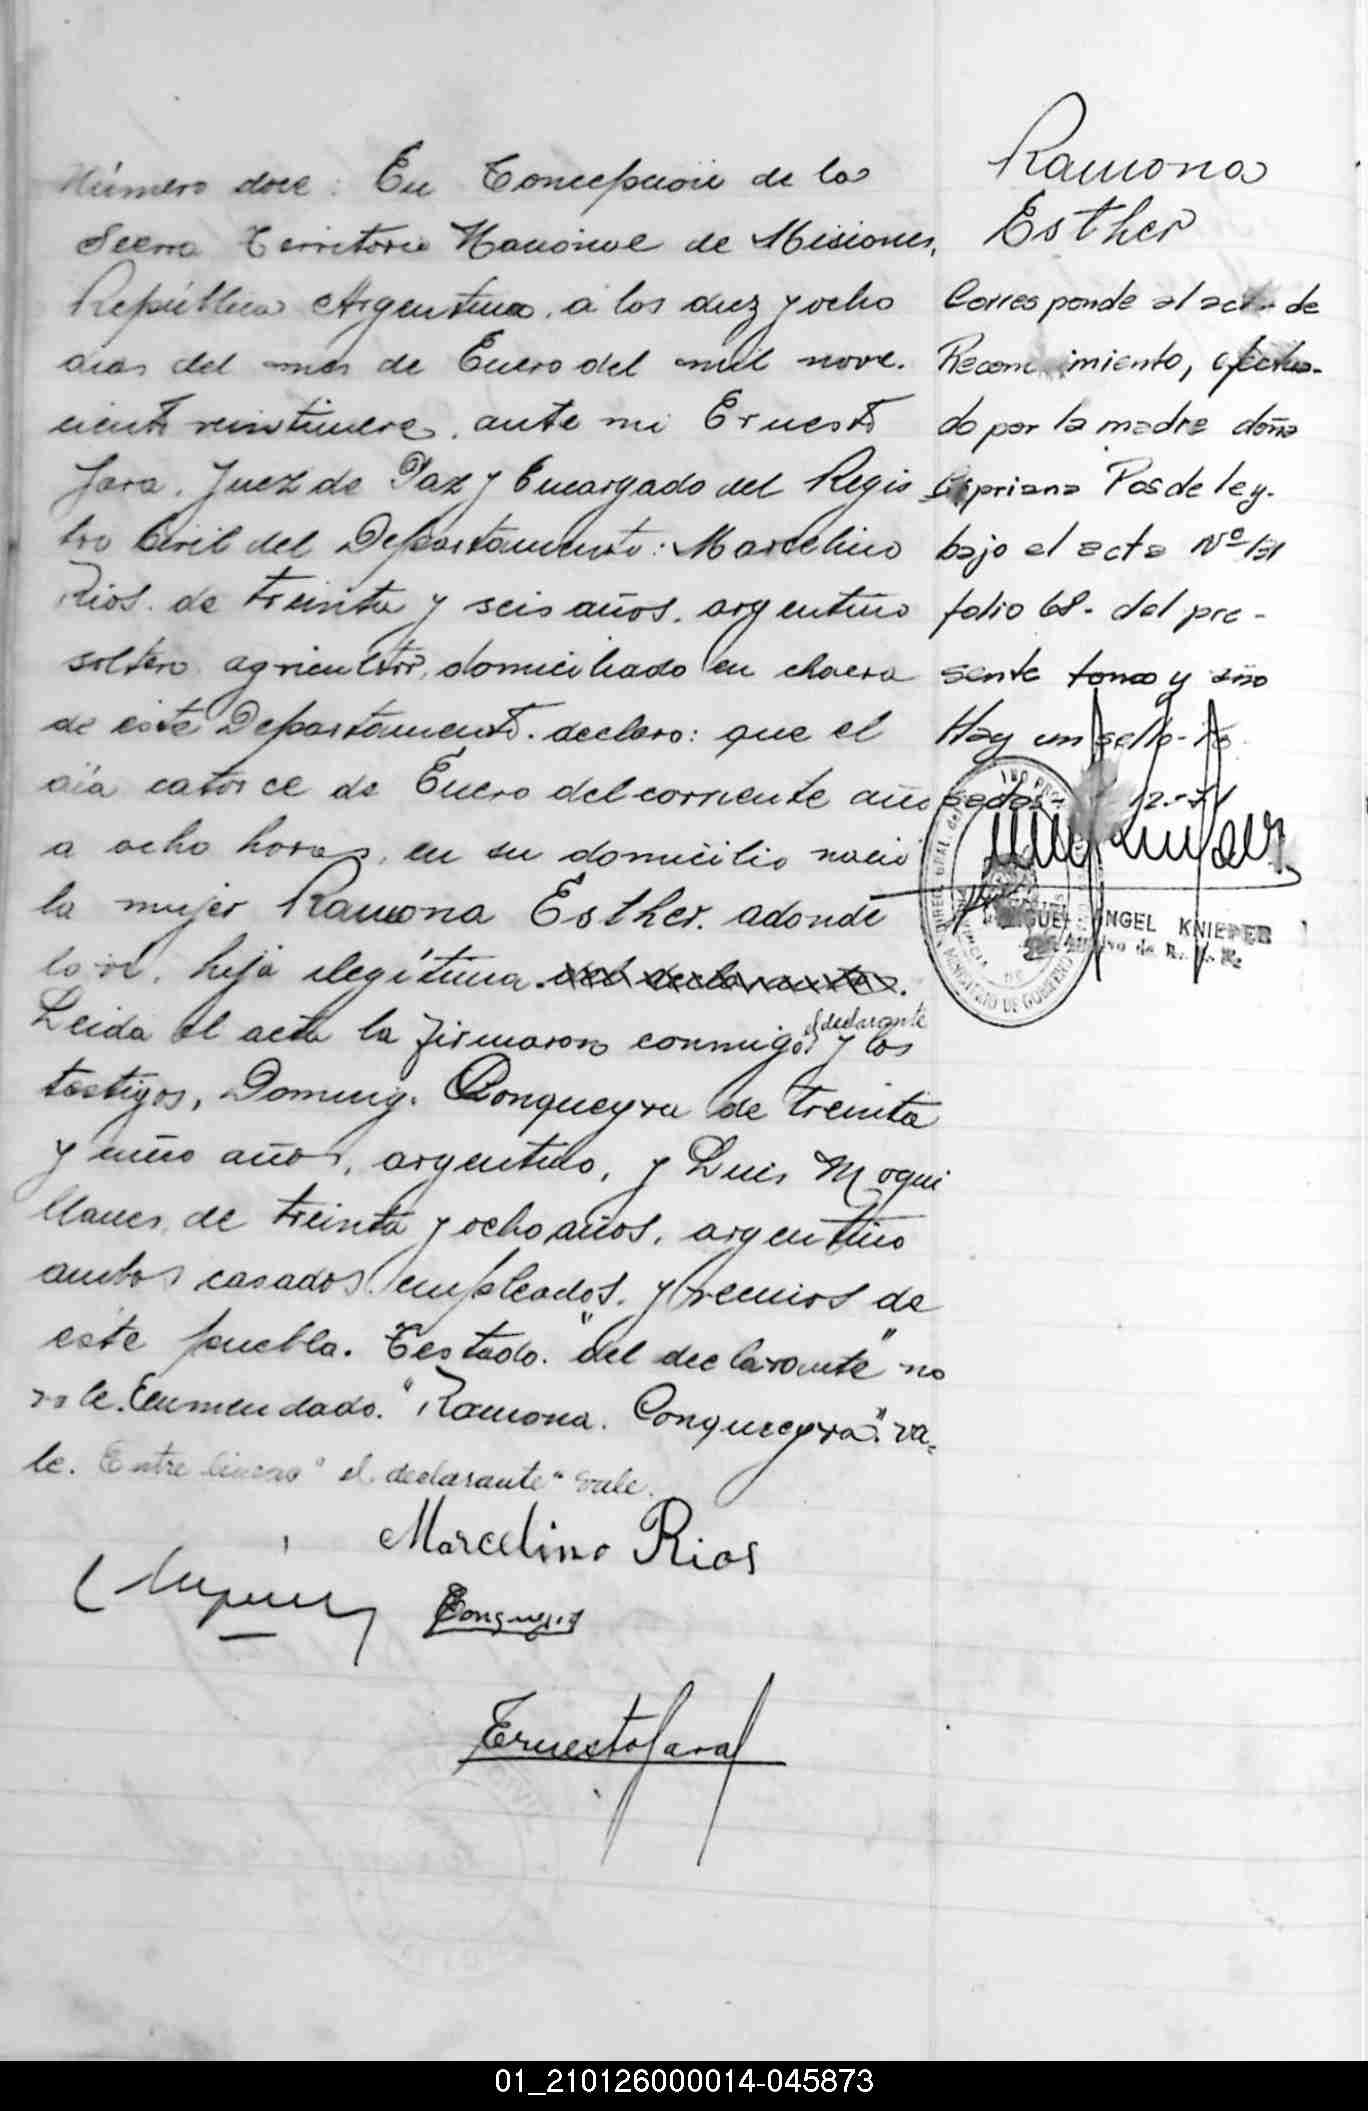 Número doce: En Concepción de la
Sierra Territorio Nacional de Misiones,
República Argentina, a los diez y ocho
dias del mes de Enero del mil nove-
cientos veintinueve, ante mi Ernesto
Jara, Juez de Paz y Encargado del Regis
tro Civil del Departamento: Marcelino
Rios, de treinta y seis años, argentino
soltero, agricultor, domiciliado en chacra
de éste Departamento, declaro: que el
día catorce de Enero del corriente año
a ocho horas, en su domicilio nació
la mujer Ramona Esther, adonde
la vi, hija ilegítima del declarante.
Leida el acta la firmaron conmigo, el declarante y los
testigos, Domingo Conqueyra de treinta
y uno años, argentino, y Luis Moqui
llanes, de treinta y ocho años, argentino
ambos casados, empleados, y vecinos de
éste pueblo. Testado: "del declarante" no
vale. Enmendado: "Ramona. Conqueyra": va-
le. Entre lineas "el declarante" vale.
Marcelino Rios
Ernesto Jara
Ramona
Esther
Corresponde al acta de
Reconocimiento, efectua-
do por la madre doña
Cipriana Posdeley.
bajo el acta Nº 131
folio 68- del pre-
sente tomo y año
Hay un sello-
ANGEL KNIEPER
MINISTERIO DE GOBIERNO
01_210126000014-045873